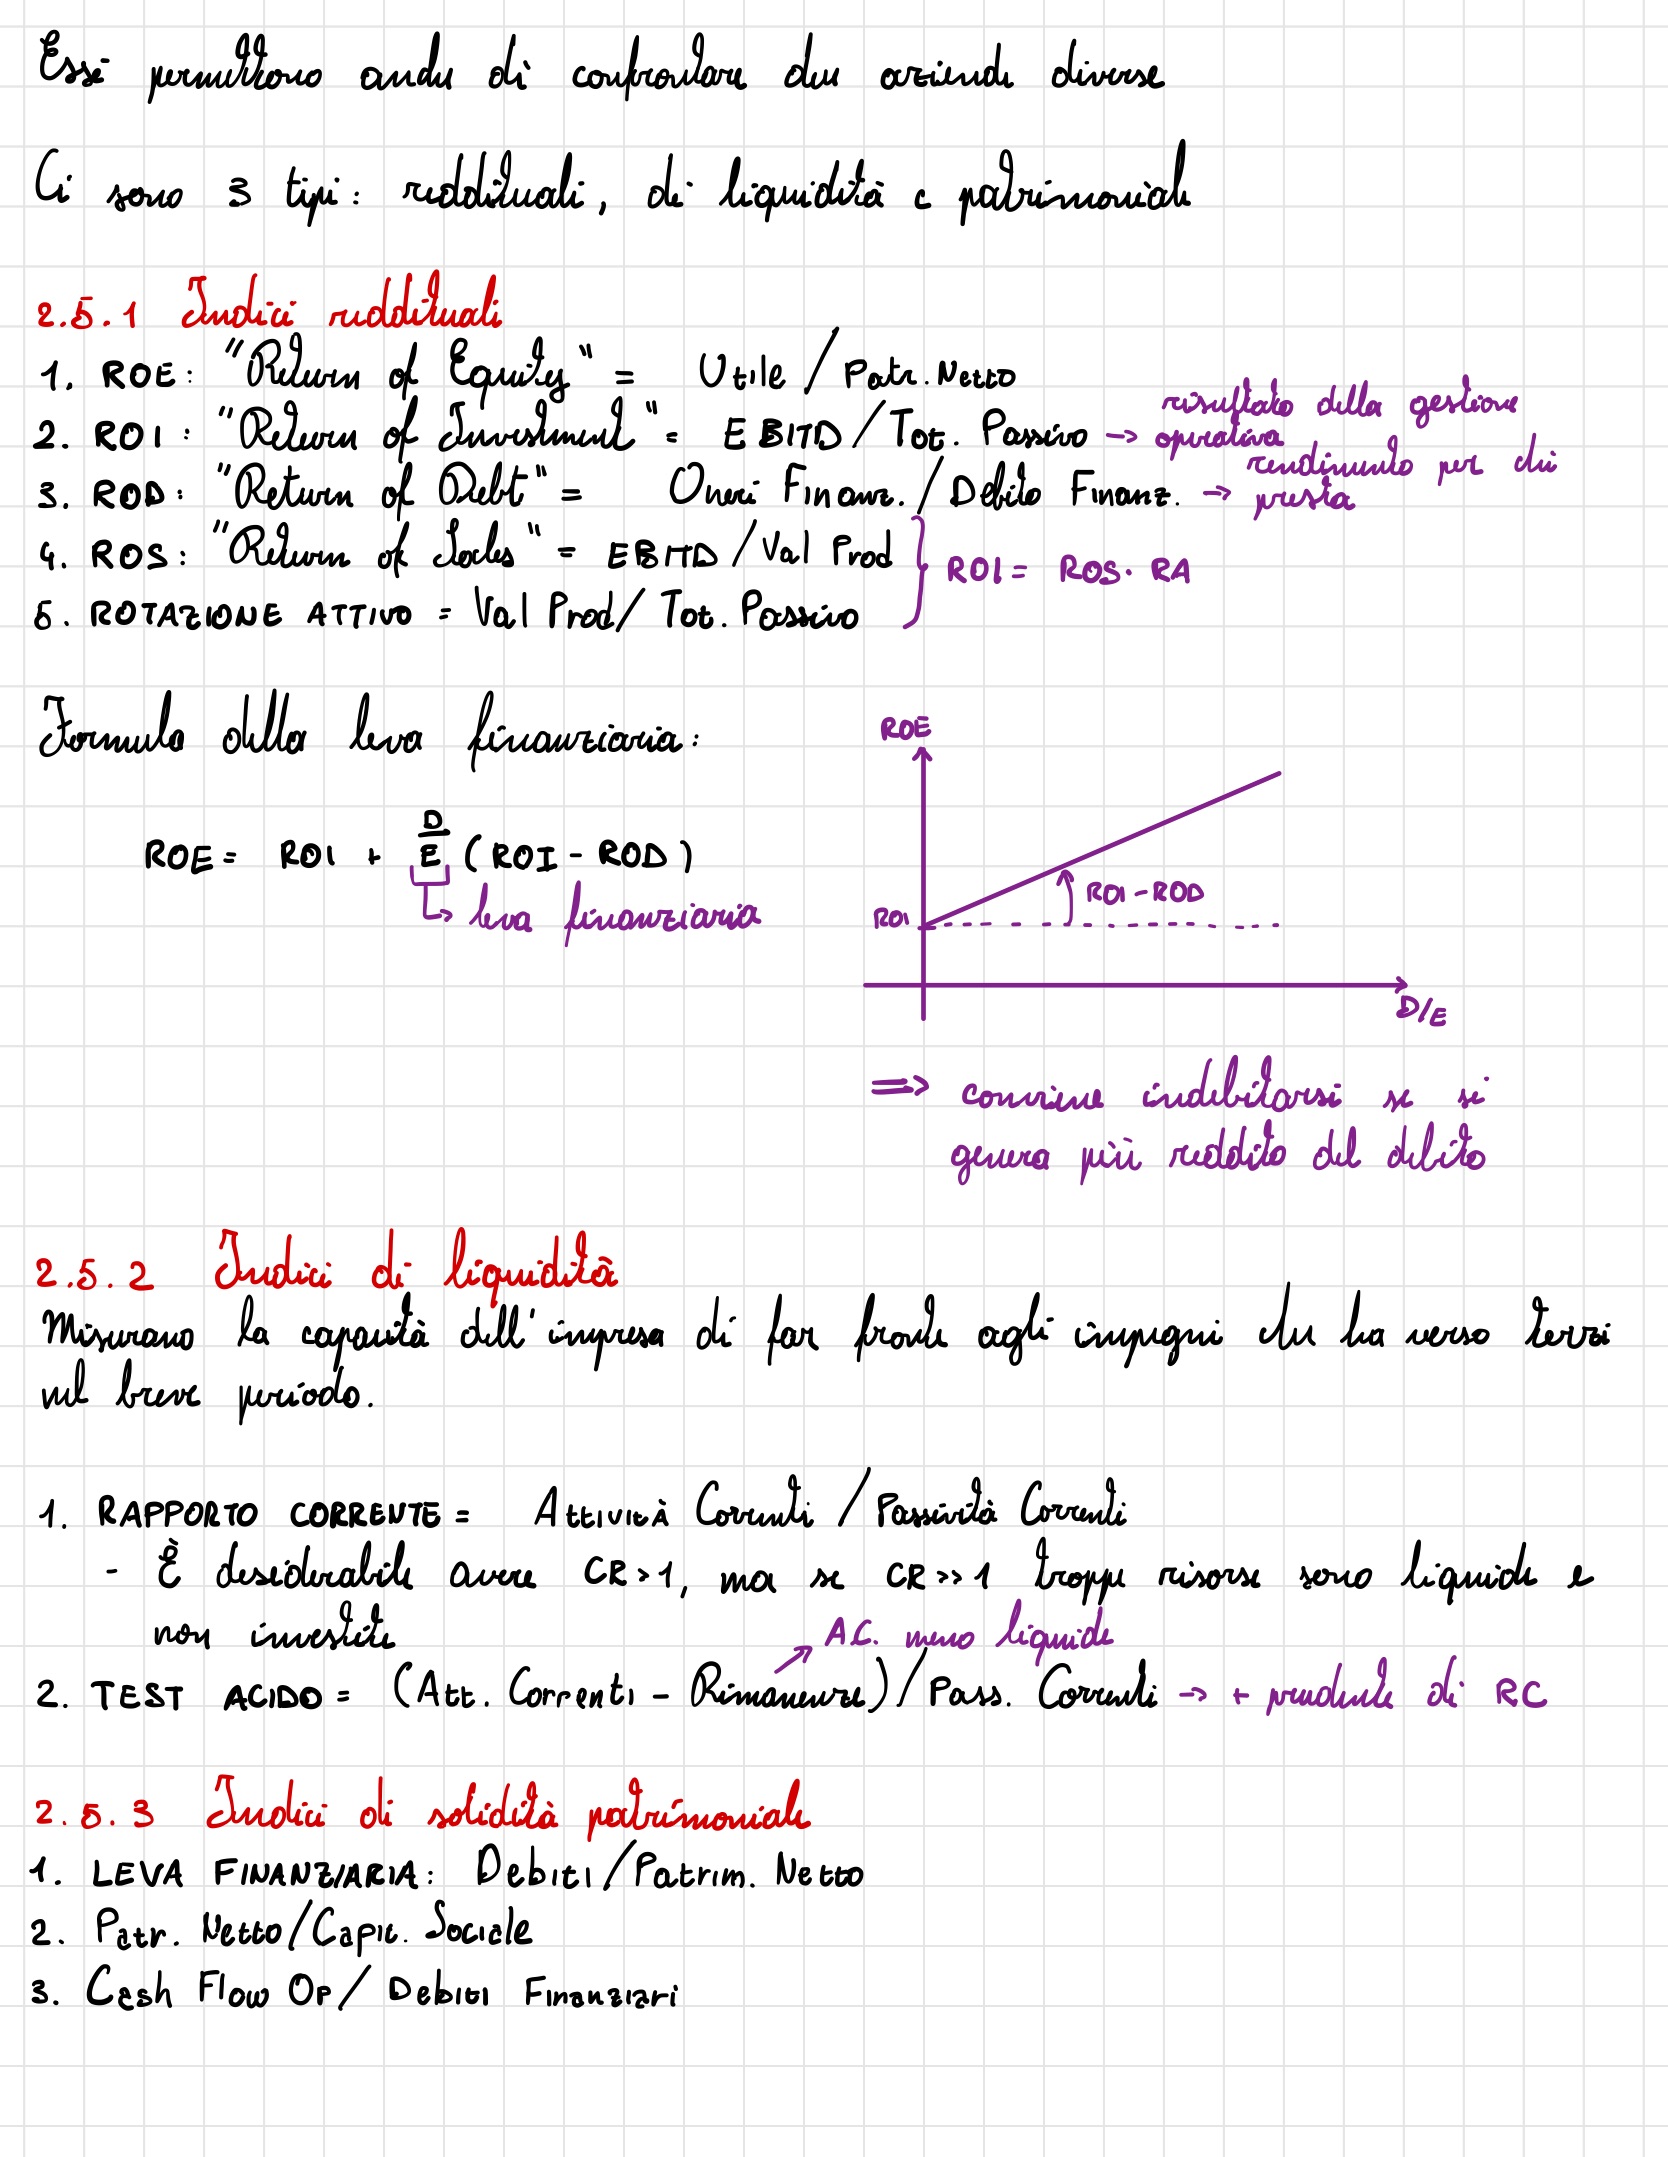 Essi permettono anche di confrontare due aziende diverse
Ci sono 3 tipi: reddituali, di liquidità e patrimoniale
2.5.1 Indici reddituali
1. ROE: "Return of Equity" = Utile / Patr. Netto
2. ROI: "Return of Investment" = EBITD / Tot. Passivo → risultato della gestione
operativa
3. ROD: "Return of Debt" = Oneri Finanz. / Debito Finanz. → rendimento per chi
presta
4. ROS: "Return of Sales" = EBITD / Val Prod
ROI = ROS · RA
5. ROTAZIONE ATTIVO = Val Prod / Tot. Passivo
Formula della leva finanziaria:
ROE = ROI + D/E (ROI - ROD)
↳ leva finanziaria
ROE
ROI - ROD
ROI
D/E
⇒ conviene indebitarsi se si
genera più reddito del debito
2.5.2 Indici di liquidità
Misurano la capacità dell'impresa di far fronte agli impegni che ha verso terzi
nel breve periodo.
1. RAPPORTO CORRENTE = Attività Correnti / Passività Correnti
- È desiderabile avere CR > 1, ma se CR >> 1 troppe risorse sono liquide e
non investite
A.C. meno liquide
2. TEST ACIDO = (Att. Correnti - Rimanenze) / Pass. Correnti → + prudente di RC
2.5.3 Indici di solidità patrimoniale
1. LEVA FINANZIARIA: Debiti / Patrim. Netto
2. Patr. Netto / Capit. Sociale
3. Cash Flow Op / Debiti Finanziari